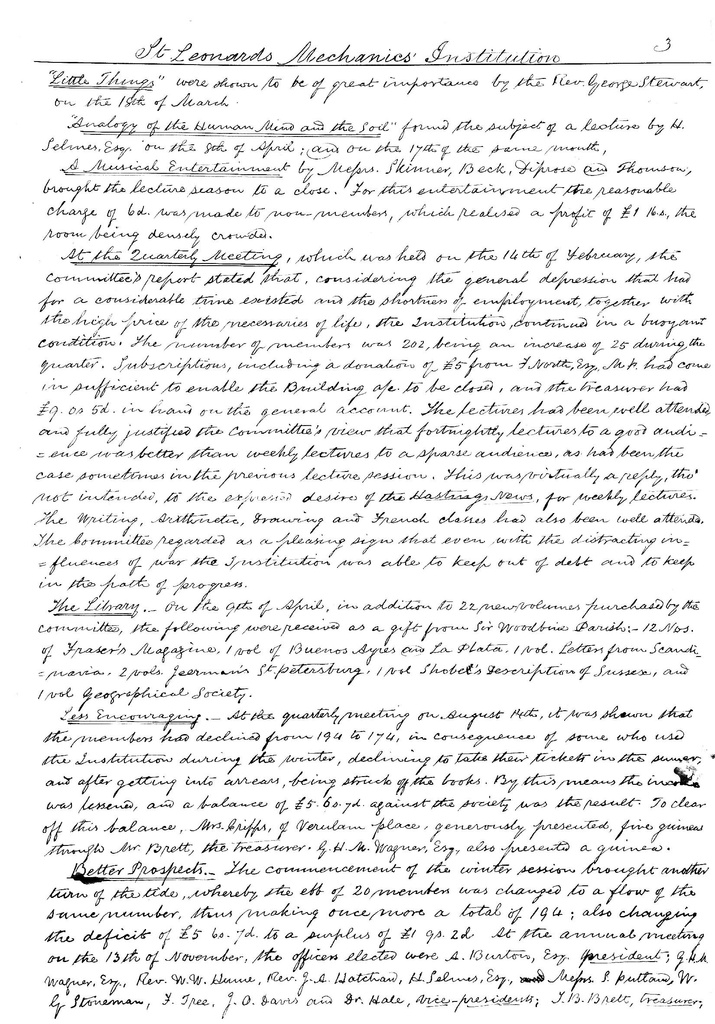 3
St Leonards Mechanics' Institution
"Little Things" were shown to be of great importance by the Rev. George Stewart,
on the 18th of March.
"Analogy of the Human Mind and the Soil" formed the subject of a lecture by H.
Selmes, Esq. on the 8th of April; and on the 17th of the same month,
A Musical Entertainment by Messrs. Skinner, Beck, Diprose and Thomson,
brought the lecture season to a close. For this entertainment the reasonable
charge of 6d. was made to non-members, which realised a profit of £1 16s, the
room being densely crowded.
At the Quarterly Meeting, which was held on the 14th of February, the
Committee's report stated that, considering the general depression that had
for a considerable time existed and the shortness of employment, together with
the high price of the necessaries of life, the Institution, continued in a buoyant
condition. The number of members was 202, being an increase of 25 during the
quarter. Subscriptions, including a donation of £5 from F North, Esq, M.P. had come
in sufficient to enable the Building a/c. to be closed, and the treasurer had
£9. 0s 5d. in hand on the general account. The lectures had been well attended
and fully justified the Committee's view that fortnightly lectures to a good audi=
=ence was better than weekly lectures to a sparse audience, as had been the
case sometimes in the previous lecture session. This was virtually a reply, tho'
not intended, to the expressed desire of the Hastings News, for weekly lectures.
The Writing, Arithmetic, Drawing and French classes had also been well attended.
The Committee regarded as a pleasing sign that even with the distracting in=
=fluences of war the Institution was able to keep out of debt and to keep
in the path of progress.
The Library. – On the 9th of April, in addition to 22 new volumes purchased by the
committee, the following were received as a gift from Sir Woodbine Parish:– 12 Nos.
of Fraser's Magazine, 1 vol of Buenos Ayres and La Plata, 1 vol. Letters from Scandi=
=navia. 2 vols. Jerman's St. Petersburg, 1 vol Shobel's Description of Sussex, and
1 vol Geographical Society.
Less Encouraging. – At the quarterly meeting on August 14th, it was shown that
the members had declined from 194 to 174, in consequence of some who used
the Institution during the winter, declining to take their tickets in the summer,
and after getting into arrears, being struck off the books. By this means the income
was lessened, and a balance of £5. 6o. 7d. against the society was the result. To clear
off this balance, Mrs. Cripps, of Verulam place, generously presented, five guineas
through Mr. Brett, the treasurer. G. H. M. Wagner, Esq, also presented a guinea.
Better Prospects. – The commencement of the winter session brought another
turn of the tide, whereby the ebb of 20 members was changed to a flow of the
same number, thus making once more a total of 194; also changing
the deficit of £5 6o. 7d. to a surplus of £1 9s. 2d. At the annual meeting
on the 13th of November, the officers elected were A. Burton, Esq. president; G.H.M.
Wagner, Esq., Rev. W. W. Hume, Rev. J. A. Hatchard, H. Selmes, Esq., Messrs. S. Putland, W.
G Stoneman, F. Tree, J. O. Davis and Dr. Hale, vice-presidents; T. B. Brett, treasurer,